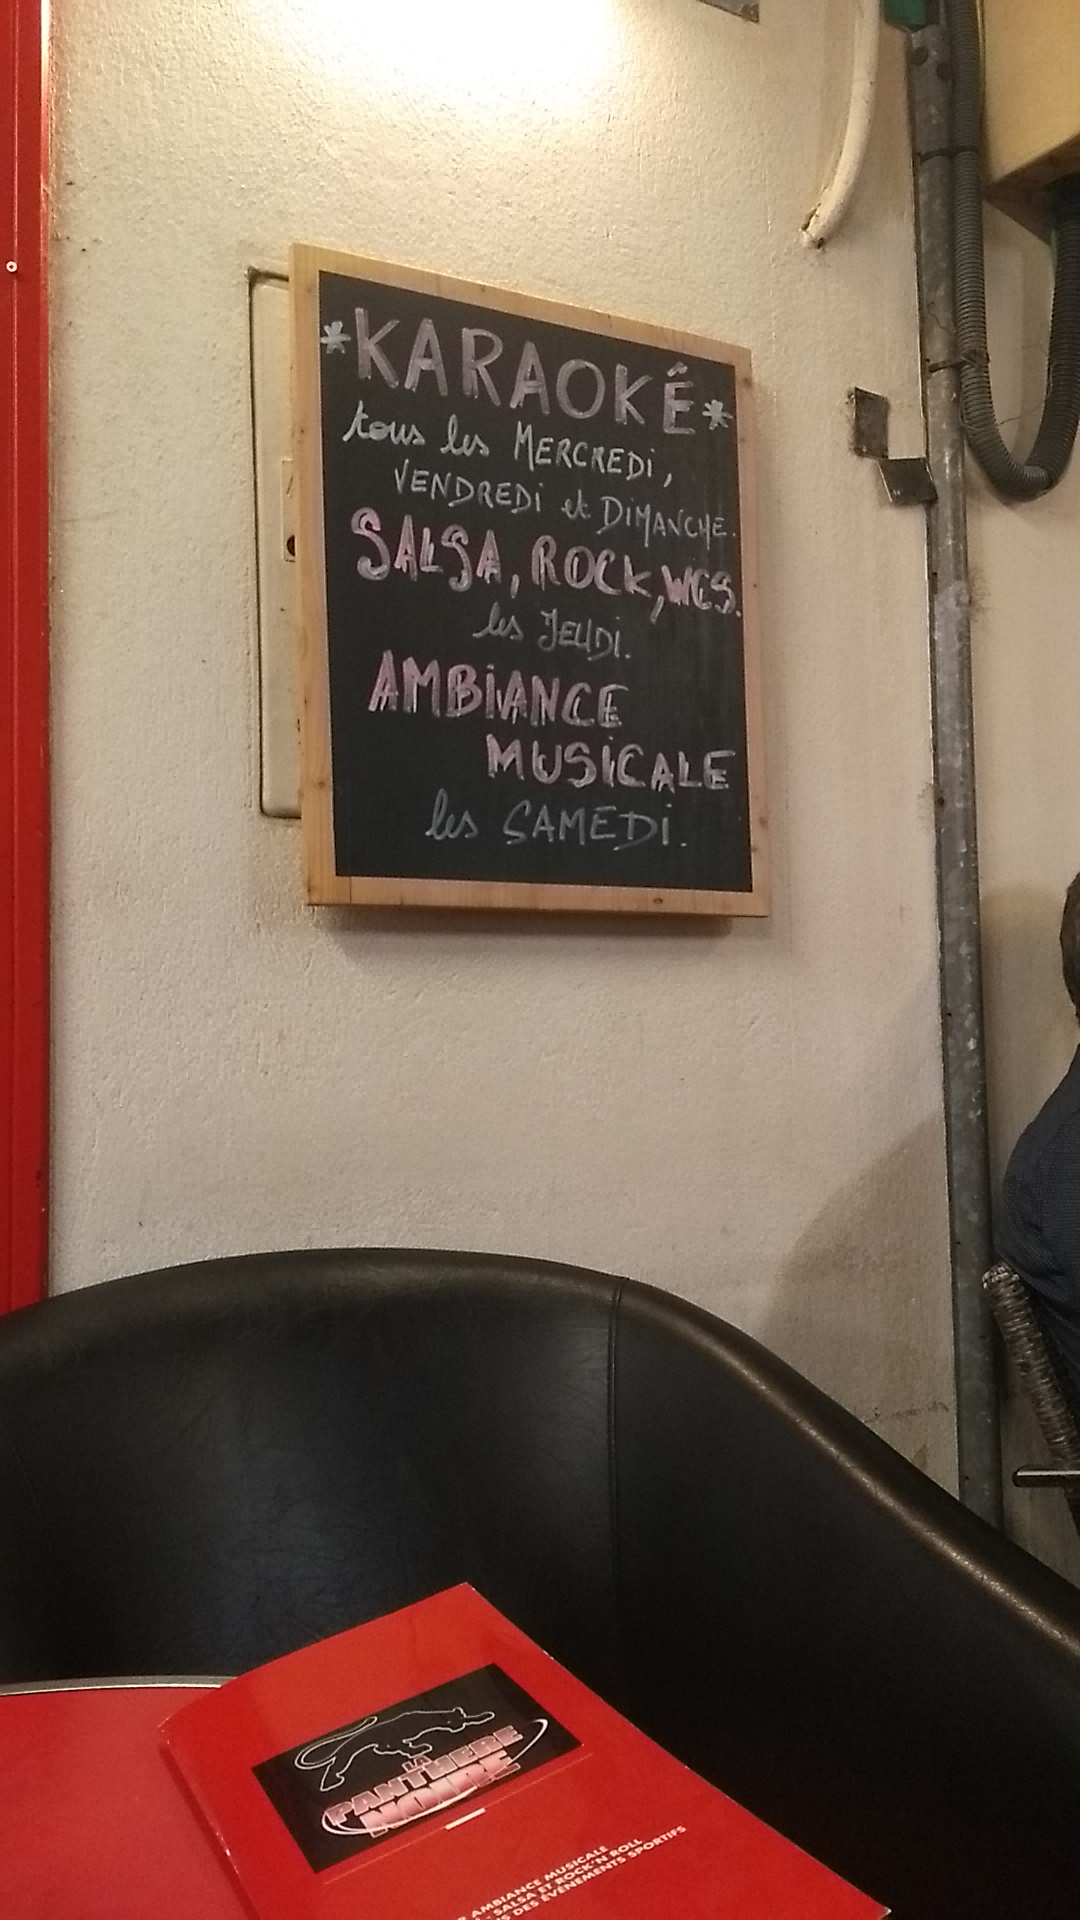 *KARAOKÉ*
tous les MERCREDi,
VENDREDi et DiMANCHE.
SALSA, ROCK, WCS.
les JEUDi.
AMBiANCE
MUSiCALE
les SAMEDi.
LA
PANTHERE
NOIRE
AMBIANCE MUSICALE
SALSA ET ROCK'N ROLL
DES ÉVÉNEMENTS SPORTIFS